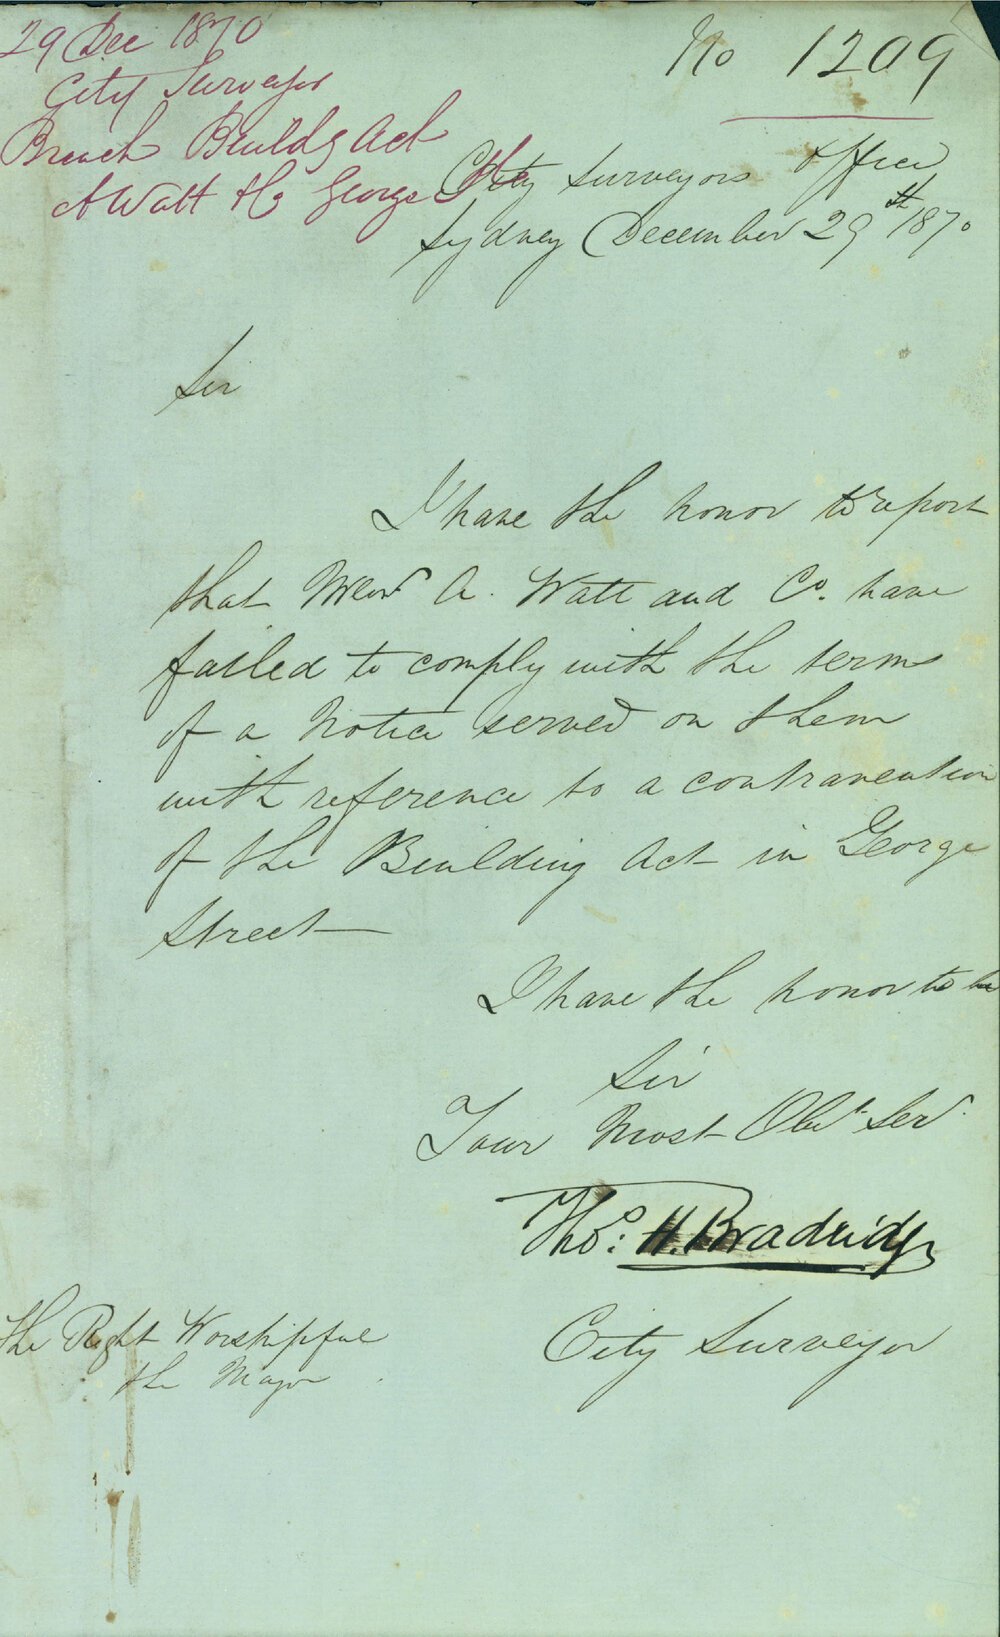 29 Dec 1870
City Surveyor
Breach Buildg Act
A Watt & Co George Ste
No 1209
City Surveyors Office
Sydney December 29th 1870
Sir
I have the honor to report
that Messrs A. Watt and Co. have
failed to comply with the terms
of a Notice served on them
with reference to a contravention
of the Building Act in George
Street
I have the honor to be
Sir
Your Most Obt Servt
Thos: H. Bradridge
City Surveyor
The Right Worshipful
the Mayor